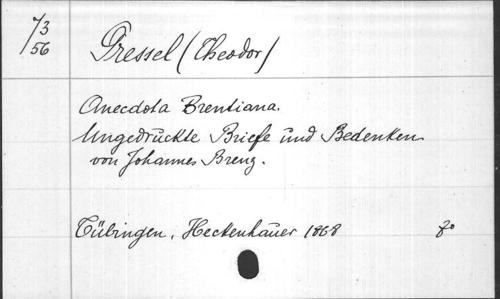 73
56
Pressel (Theodor)
Anecdota Brentiana.
Ungedruckte Briefe und Bedenken
von Johannes Brenz.
Tübingen, Heckenhauer 1868 8°